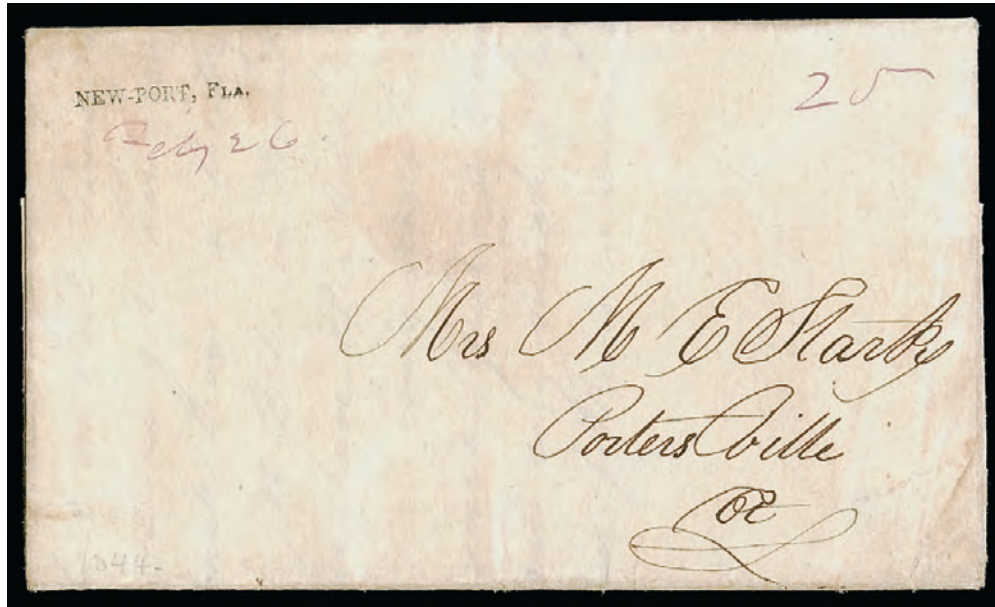 NEW-PORT, FLA.
25
Feby 26.
Mrs M E Starke
Porters Ville
1844-